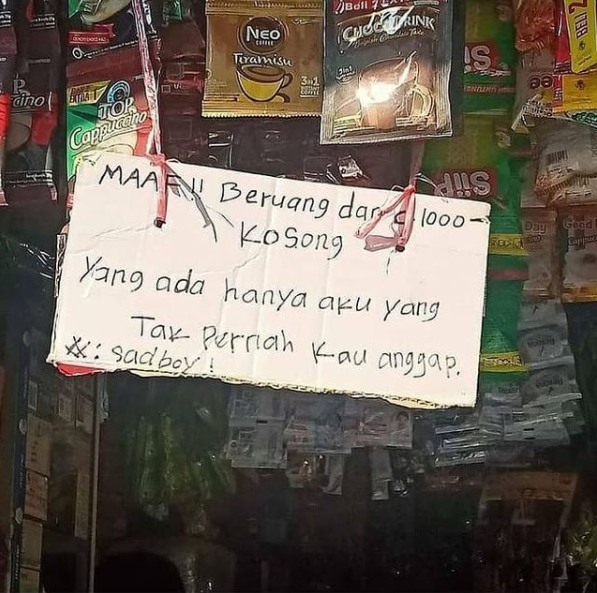 NEO
COFFEE
Tiramisu
3in1
CHOCODRINK
TOP
Cappuccino
MAAF!! Beruang dan C 1000-
Kosong
Yang ada hanya aku yang
Tak Pernah Kau anggap.
: sadboy!
Day
Good